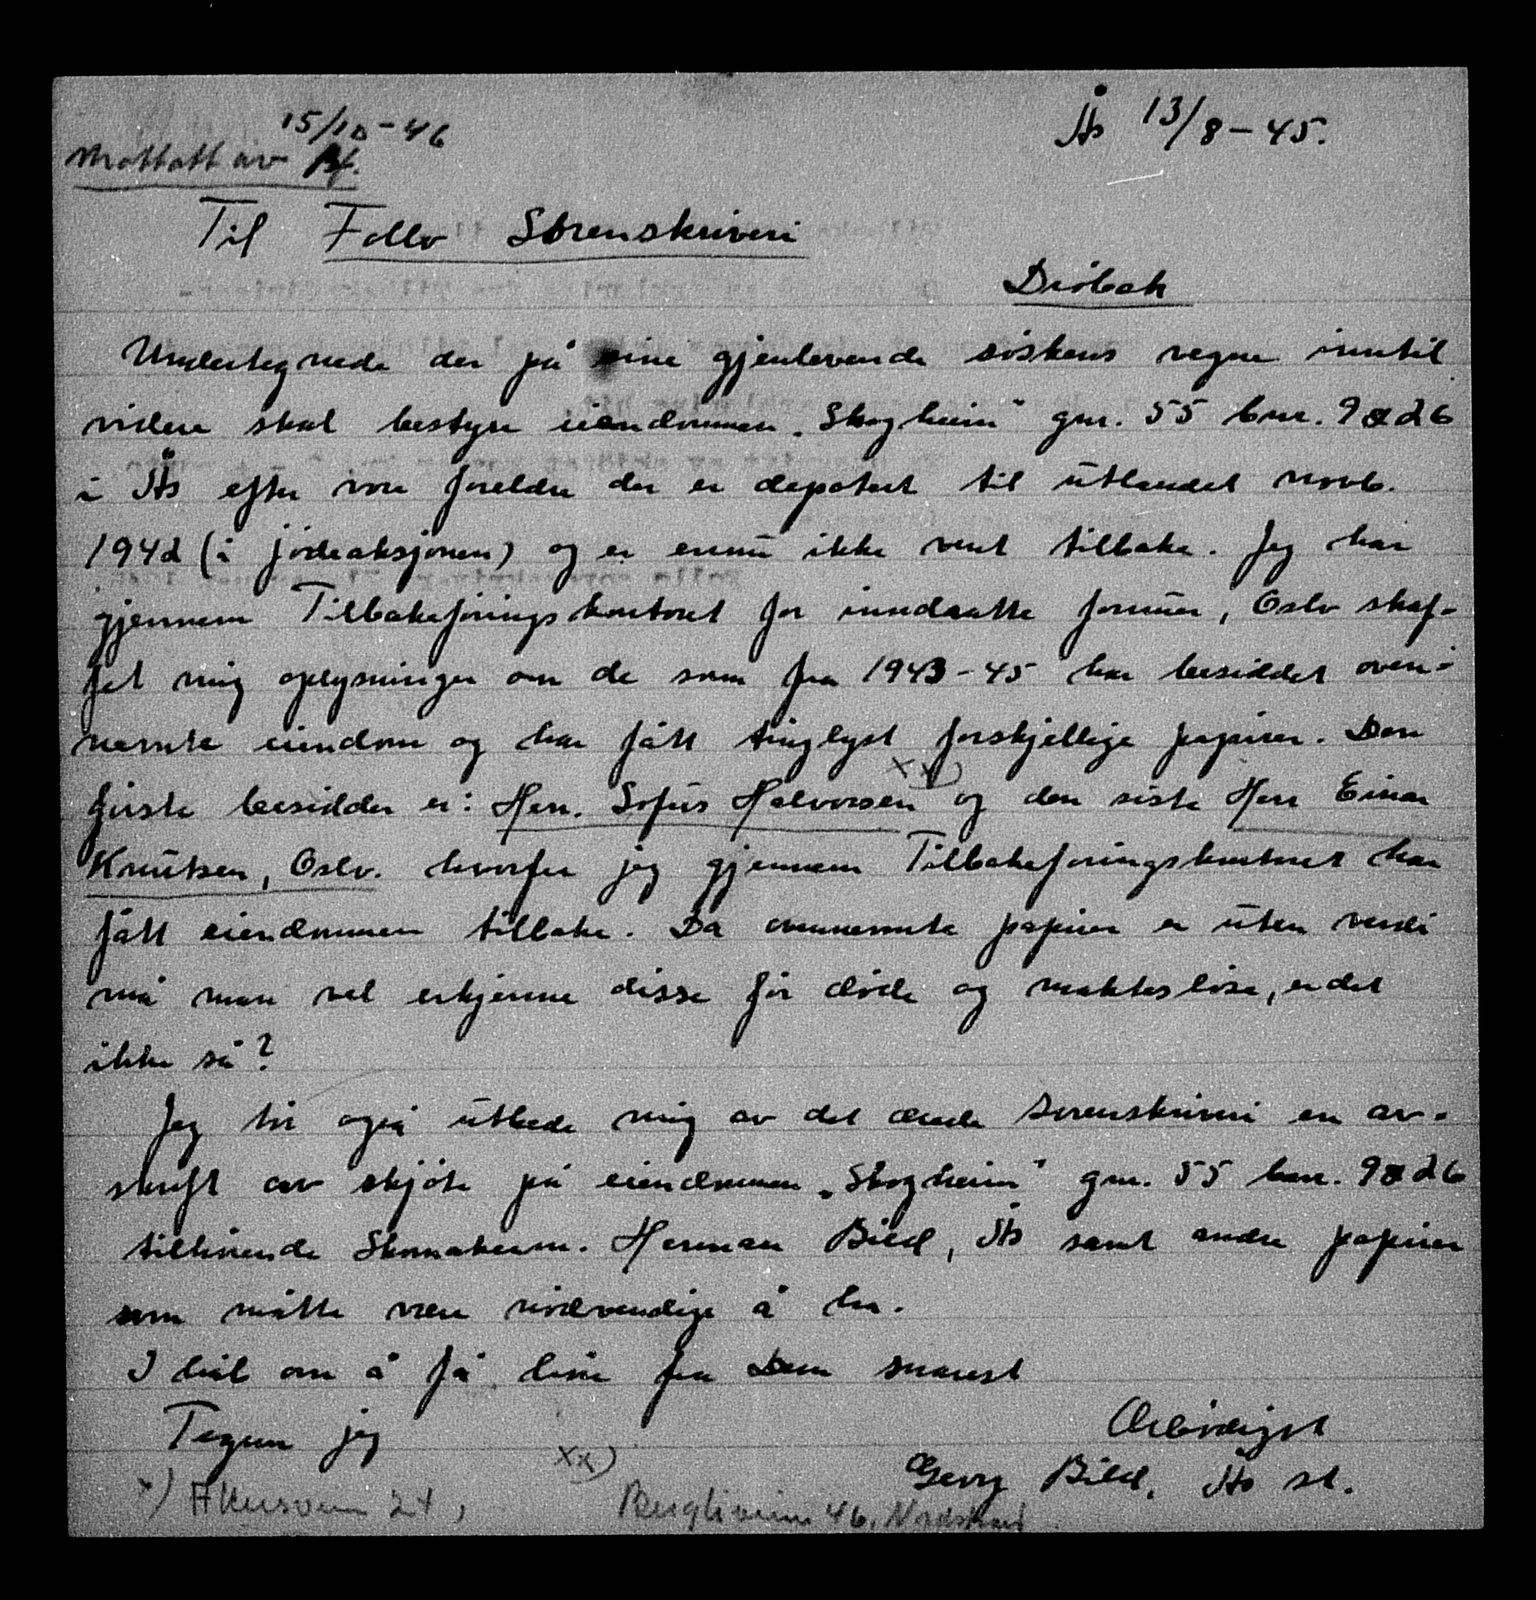 15/10-46
Mottatt av
Ås 13/8-45.
Til Follo Sörenskriveri
Dröbak
Undertegnede der på sine gjenlevende söskens vegne inntil
videre skal bestyre eiendommen „Skogheim" gnr. 55 bnr. 9 & 26
i Ås efter vore foreldre der er depotert til utlandet novb.
1942 (i jödeaksjonen) og er ennu ikke vent tilbake. Jeg har
gjennem Tilbakeföringskontoret for inndratte formuer, Oslo skaf-
fet mig oplysninger om de som fra 1943-45 har besiddet oven-
nevnte eiendom og har fått tinglyst forskjellige papirer. Den
xx)
förste besidder er: Herr. Sofus Halvorsen og den siste Herr Einar
Knutsen, Oslo. hvorfor jeg gjennem Tilbakeföringskontoret har
fått eiendommen tilbake. Da ovennevnte papirer er uten verdi
må man vel erkjenne disse for döde og makteslöse, er det
ikke så?
Jeg tör også utbede mig av det ærede sorenskriveri en av-
skrift av skjöte på eiendommen „Skogheim" gnr. 55 bnr. 9 & 26
tilhörende Skomakerm. Herman Bild, Ås samt andre papirer
som måtte være nödvendige å ha.
I håb om å få höre fra Dem snarest
Tegner jeg
Ærbödigst
Georg Bild, Ås st.
x) Akersveien 24,
xx)
46, Nordstrand